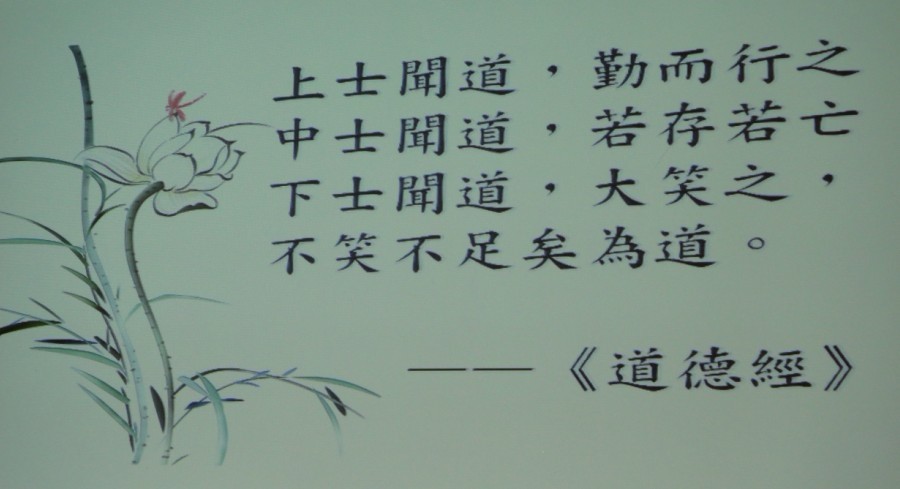 上士聞道，勤而行之
中士聞道，若存若亡
下士聞道，大笑之，
不笑不足矣為道。
——《道德經》